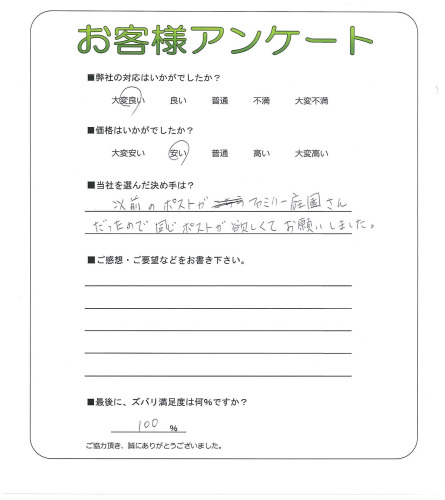 お客様アンケート
■弊社の対応はいかがでしたか？
大変良い 良い 普通 不満 大変不満
■価格はいかがでしたか？
大変安い 安い 普通 高い 大変高い
■当社を選んだ決め手は？
以前のポストが ファミリー庭園さん
だったので同じポストが欲しくてお願いしました。
■ご感想・ご要望などをお書き下さい。
■最後に、ズバリ満足度は何%ですか？
100 %
ご協力頂き、誠にありがとうございました。